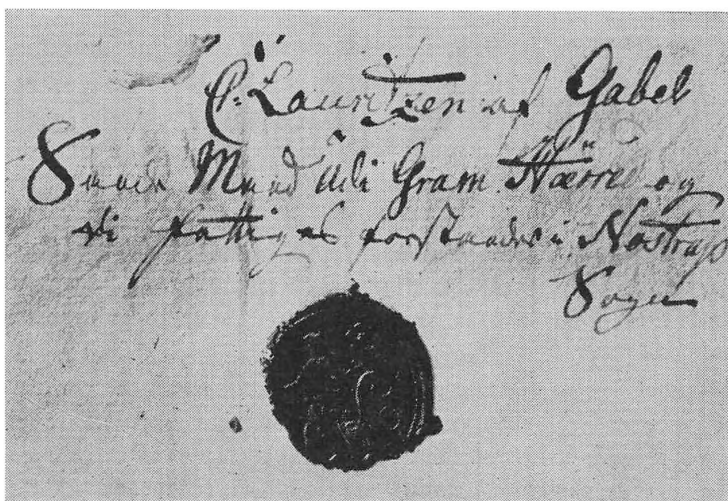 C: Lauritzen af Gabel
Sande Mand udi Gram Hærret og
di fattiges forstander i Nostrup
Sogn